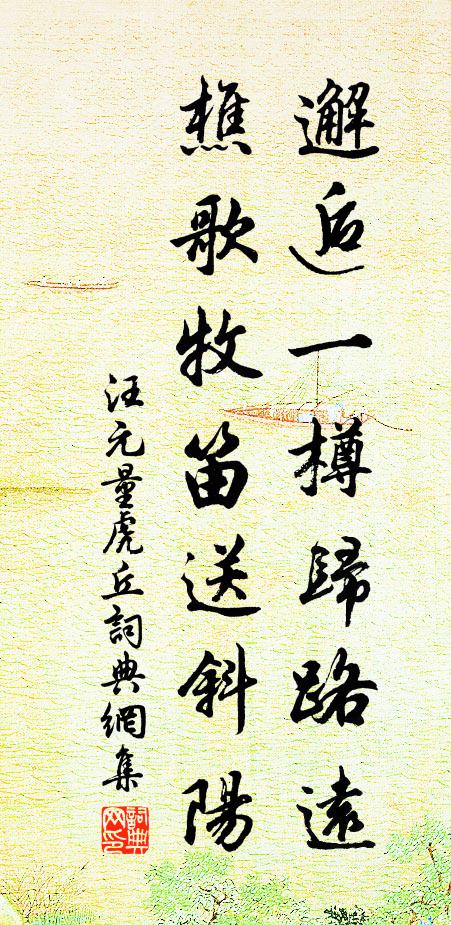 邂逅一樽歸路遠
樵歌牧笛送斜陽
汪元量虎丘詞典網集
詞典網印